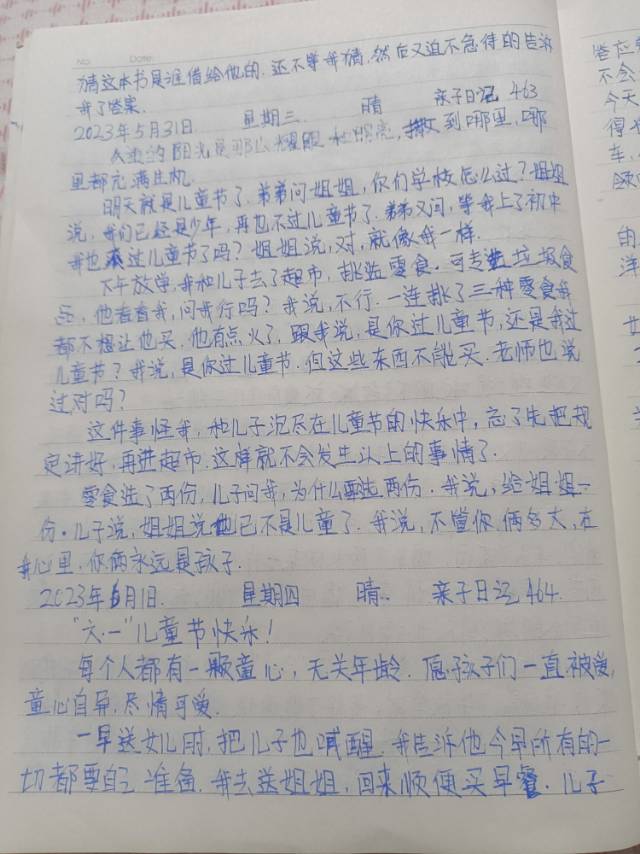 No.    Date.
猜这本书是谁借给他的.还不等我猜,然后又迫不急待的告诉
我了答案.
2023年5月31日    星期三    晴    亲子日记 463
的阳光是那么耀眼 到哪里,哪
里都充满生机.
明天就是儿童节了.弟弟问姐姐,你们学校怎么过?姐姐
说,我们已经是少年,再也不过儿童节了.弟弟又问,等我上了初中
我也不过儿童节了吗?姐姐说,对,就像我一样.
下午放学,我和儿子去了超市,挑选零食.可专选垃圾食
品,他看看我,问我行吗?我说,不行.一连挑了三种零食我
都不想让他买,他有点火了,跟我说,是你过儿童节,还是我过
儿童节?我说,是你过儿童节.但这些东西不能买.老师也说
过对吗?
这件事怪我,和儿子沉尽在儿童节的快乐中,忘了先把规
定讲好,再进超市.这样就不会发生以上的事情了.
零食选了两份,儿子问我,为什么要选两份.我说,给姐姐一
份.儿子说,姐姐说他已不是儿童了.我说,不管你俩多大,在
我心里,你俩永远是孩子.
2023年6月1日.    星期四    晴.    亲子日记 464.
“六·一”儿童节快乐!
每个人都有一颗童心,无关年龄.愿孩子们一直被爱,
童心自异,尽情可爱.
一早送女儿时,把儿子也喊醒.我告诉他今早所有的一
切都要自己准备.我去送姐姐,回来顺便买早餐.儿子
不会
今天
得
车,
的
洋